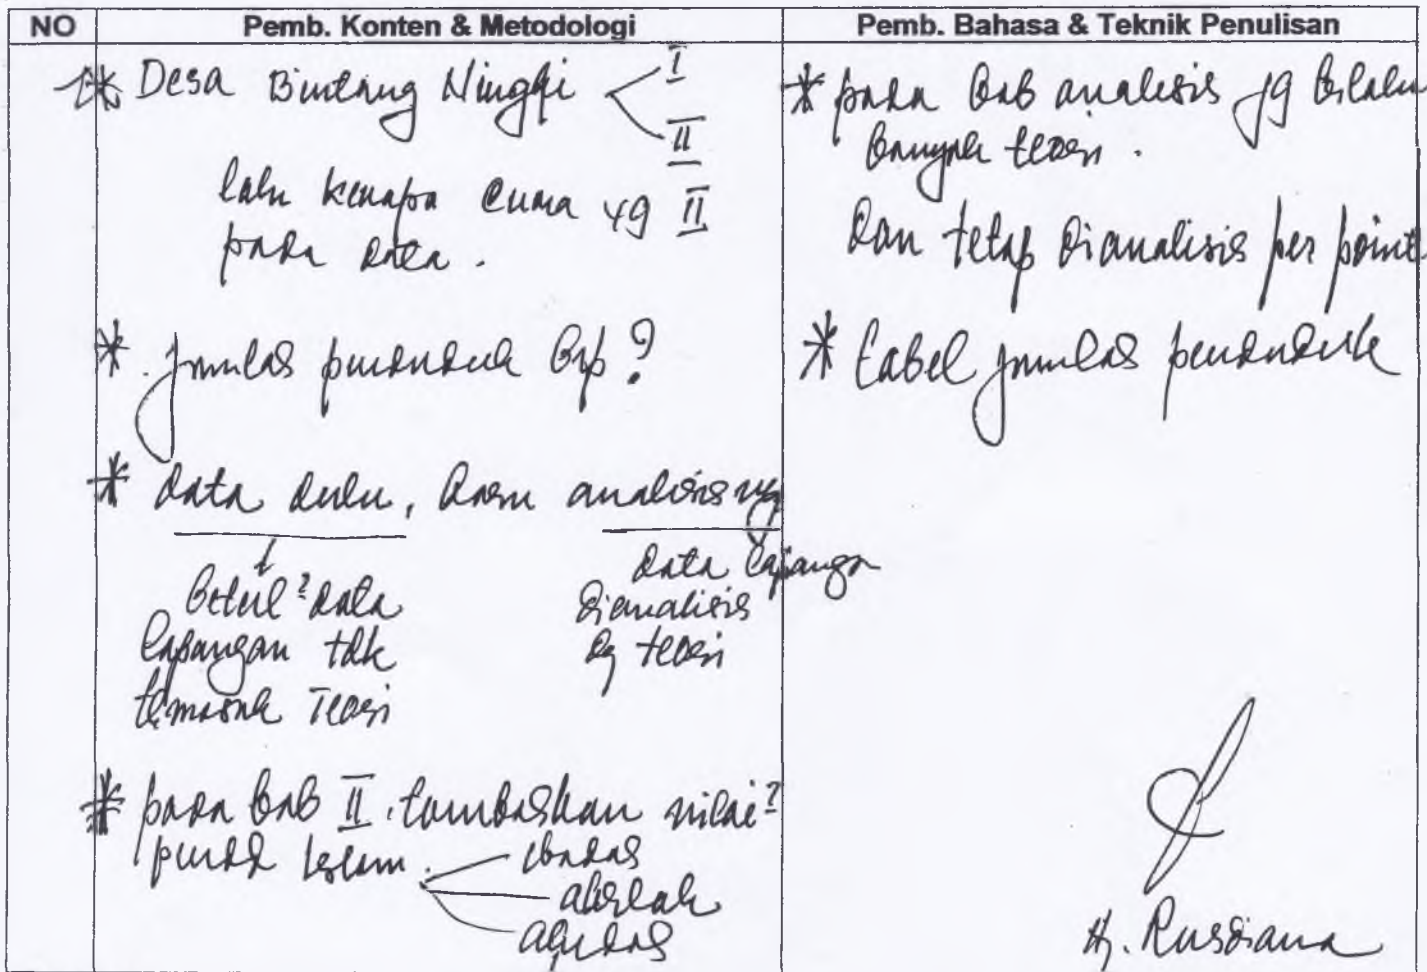 NO
Pemb. Konten & Metodologi
Pemb. Bahasa & Teknik Penulisan
* Desa Bintang Ninggi
I
II
lalu kenapa cuma yg II
pada data.
* jumlah penduduk brp?
* data dulu, baru analisisnya
betul² data
lapangan tdk
termasuk Teori
data lapangan
dianalisis
dg teori
* pada bab II. tambahkan nilai²
pendd Islam.
ibadah
akhlak
aqidah
* pada bab analisis yg
banyak teori.
dan tetap dianalisis per point
* tabel jumlah penduduk
Hj. Rusdiana